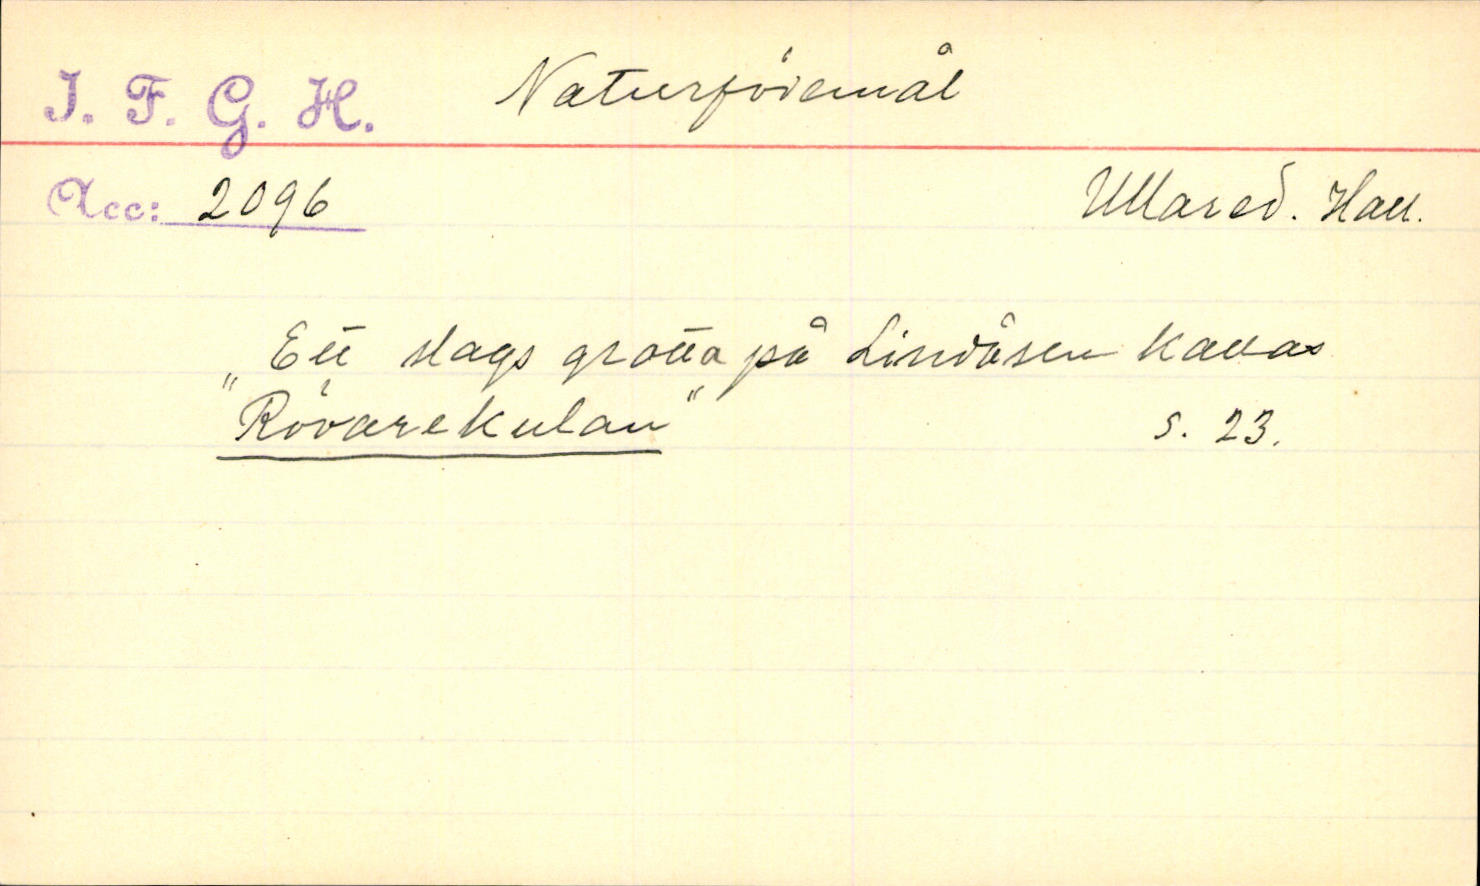 I. F. G. H. Naturföremål
Acc: 2096 Ullared. Hall.
Ett slags grotta på Lindåsen kallas
"Rövarekulan" s. 23.